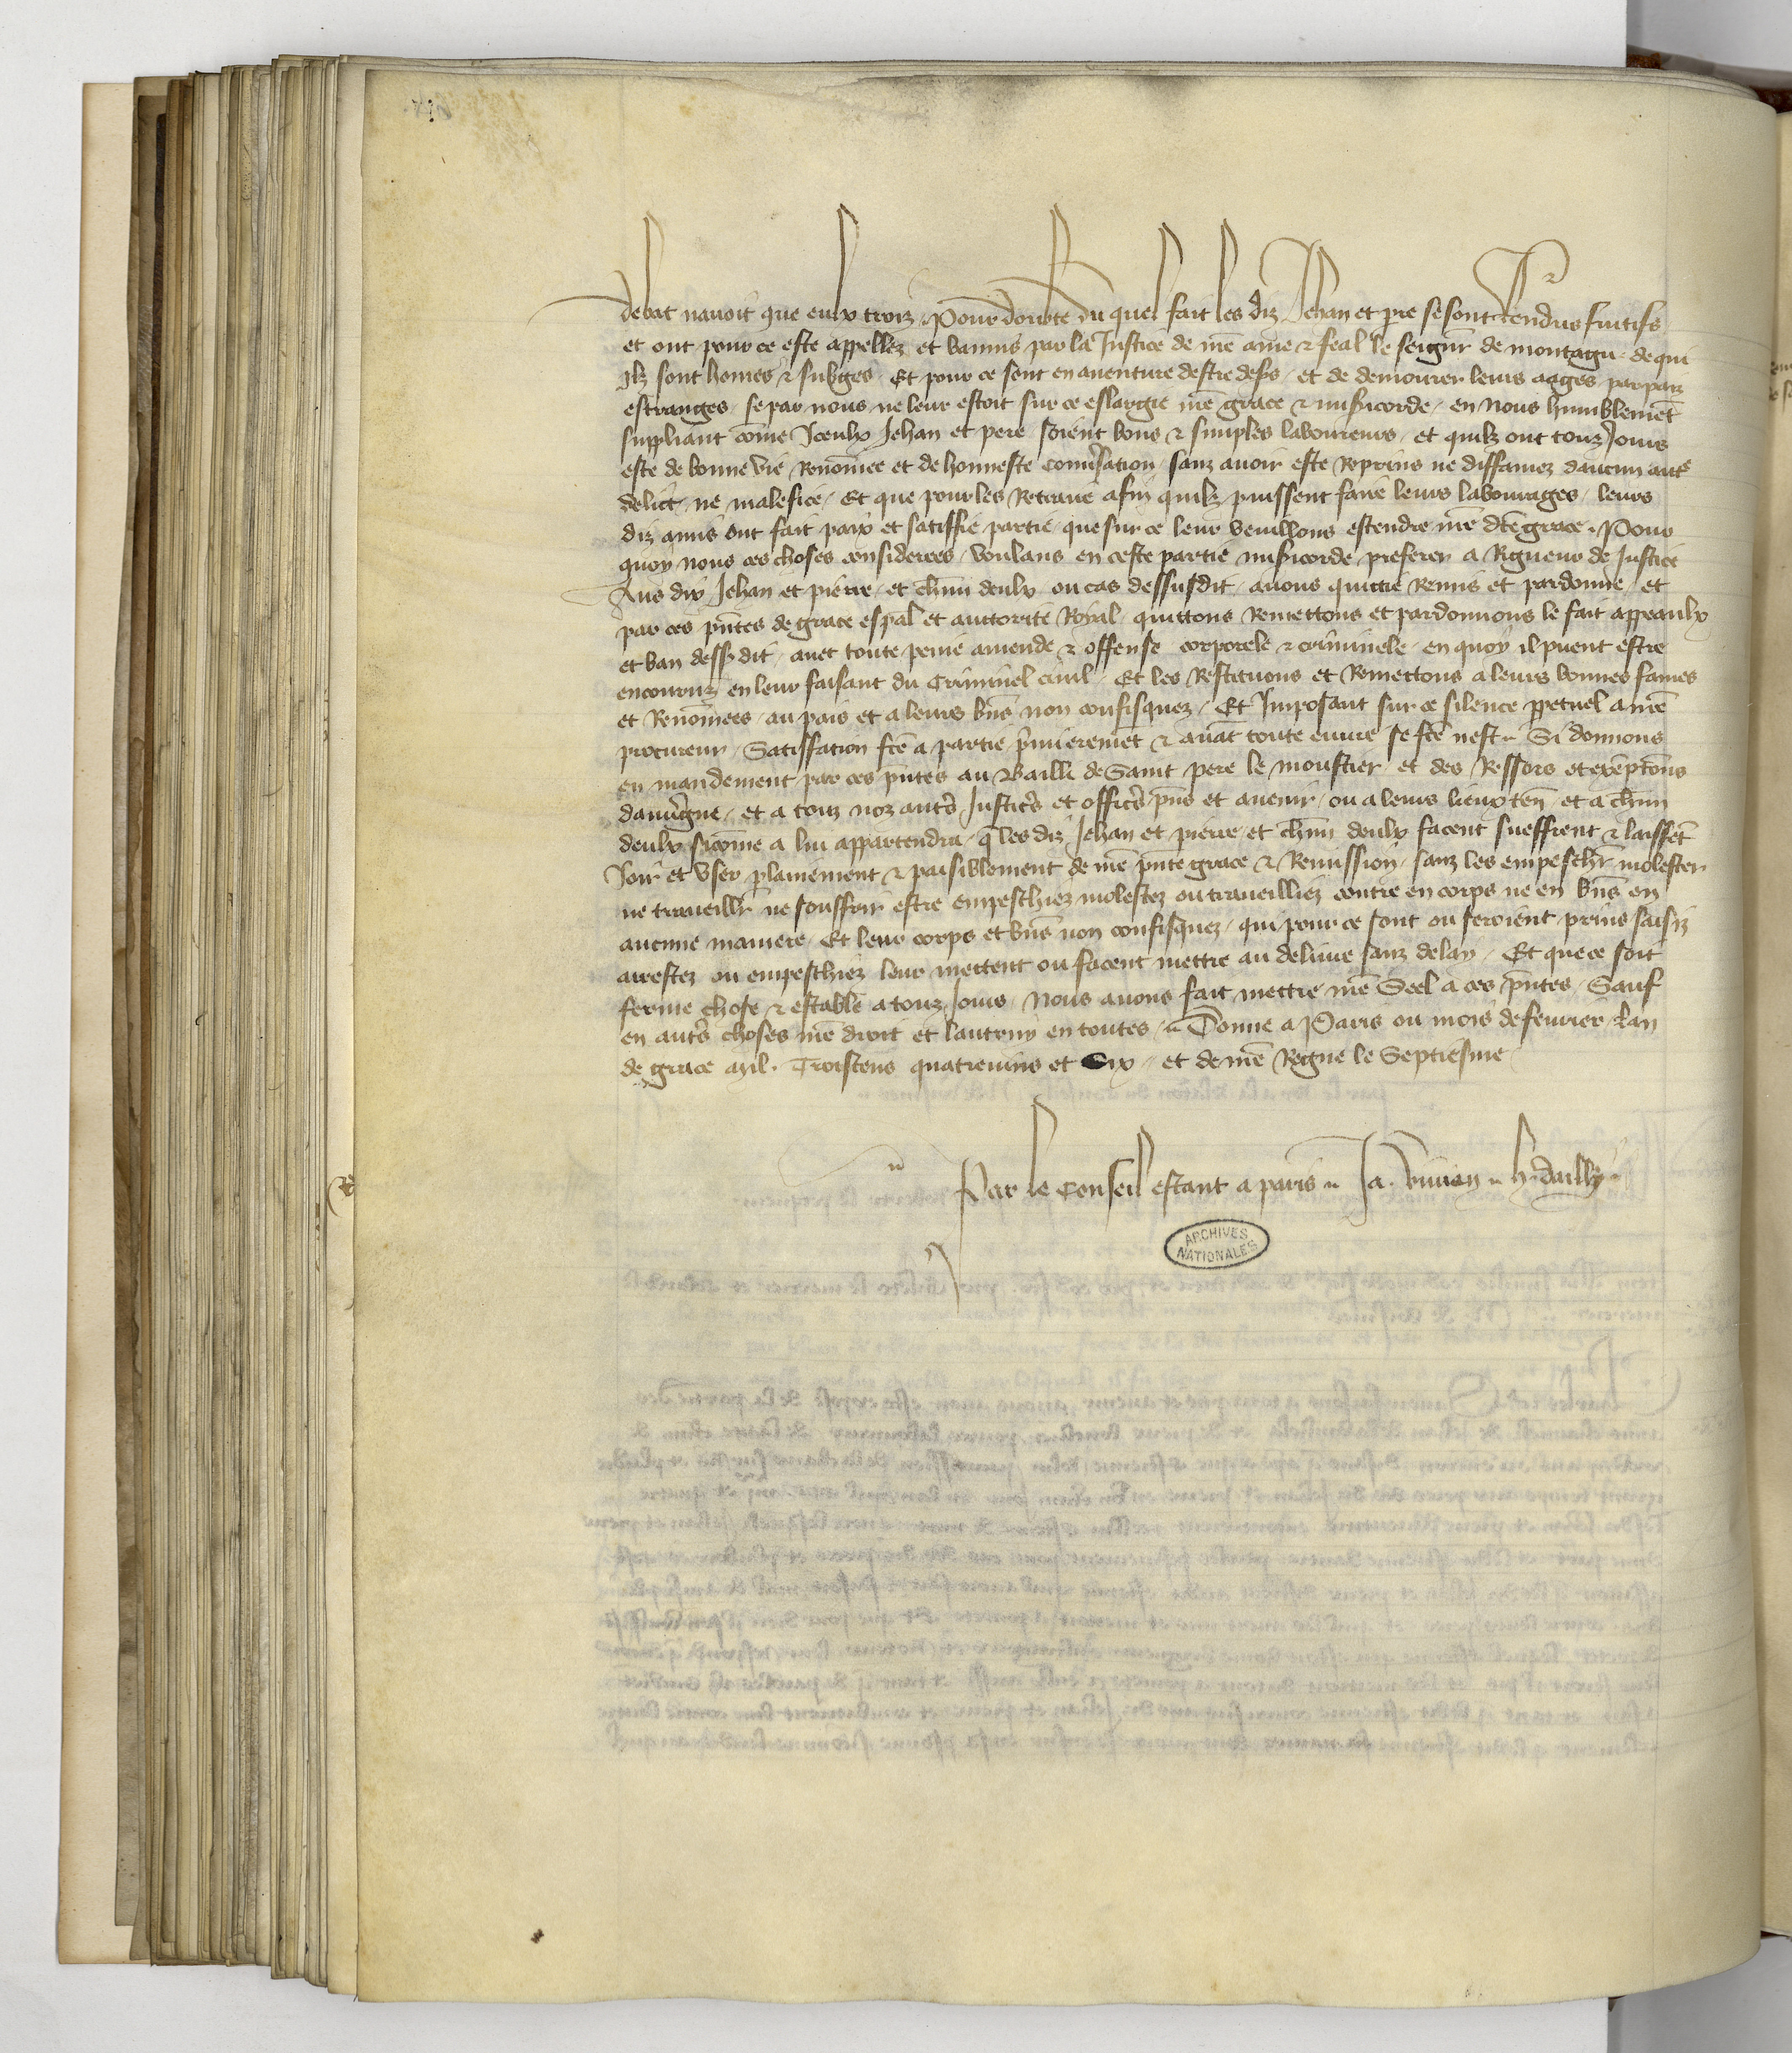 debat navoit que eulx troiz. Pour doubte du quel fait les diz Jehan et pre se sont renduz fuitifs
et ont pour ce este appellez et bannis par la Justice de nre ame & feal le seignr de montagu de qui
Ilz sont homes & subges. Et pour ce sont en aventure destre desers et de demourer leurs aages par paiz
estranges se par nous ne leur estoit sur ce eslargie nre grace & misicorde en Nous humblemet
suppliant come Iceulx Jehan et pere soient bons & simples laboureurs et quilz ont touz Jours
este de bonne vie Renomee et de honneste conversation sanz avoir este Reprins ne diffamez daucun autre
delict ne malefice. Et que pour les Retraire afin quilz puissent faire leurs labourages leurs
diz amis ont fait paix et satiffie partie que sur ce leur veuillons estendre nre dte grace. Pour
quoy nous ces choses considerees voulans en ceste partie misicorde preferer a Rigueur de Justice
Aus diz Jehan et pierre et chun deulx ou cas dessusdit avons quittie Remis et pardonne et
par ces pntes de grace espal et auctorite Royal quittons Remettons et pardonnons le fait appeaulx
et ban dessudit avec toute peine amende & offense corporele & criminele en quoy il puent estre
encouruz en leur faisant du Criminel civil. Et les Restituons et Remettons a leurs bonnes fames
et Renomees au pais et a leurs bns non confisquez. Et Imposant sur ce silence ppetuel a nre
procureur. Satiffation fte a partie primieremet & avat toute euvre se fte nest. Si donnons
en mandement par ces pntes au Bailli de Saint pere le moustier et des Ressors et exemptons
dauvergne et a touz noz autrs Justicrs et officrs pns et avenir ou a leurs lieux ten et a chun
deulx sicome a lui appartendra q les diz Jehan et pierre et chun deulx facent sueffrent & laisset
Joir et user plainement & paisiblement de nre pnte grace & Remission sanz les empeschr molester
ne traveillr ne souffrir estre empeschiez molestez ou traveilliez contre en corps ne en bns en
aucune maniere. Et leur corps et bns non confisquez qui pour ce sont ou seroient prins saisiz
arrestez ou empeschiez leur mettent ou facent mettre au delivre sanz delay. Et que ce soit
ferme chose & estable a touz Jours Nous avons fait mettre nre Seel a ces pntes. Sauf
en autrs choses nre droit et lautruy en toutes. Donne a Paris ou mois de fevrier lan
de grace mil. Troiscens quatrevins et six. et de nre Regne le Septiesme.
Par le conseil estant a paris. Ja. vivian. h. dailly.
ARCHIVES NATIONALES